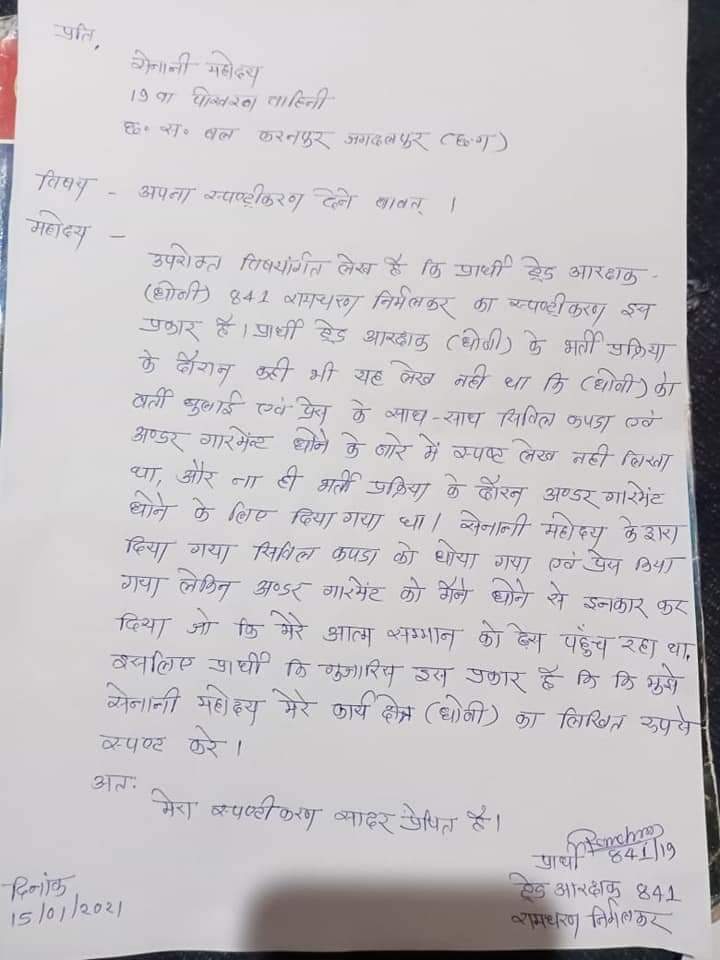 प्रति,
सेनानी महोदय
19 वा पोखरण वाहिनी
छ. स. बल करनपुर जगदलपुर (छ.ग)
विषय - अपना स्पष्टीकरण देने बावत् ।
महोदय -
उपरोक्त विषयांर्गत लेख है कि प्रार्थी ट्रेड आरक्षक -
(धोबी) 841 रामचरण निर्मलकर का स्पष्टीकरण इस
प्रकार है। प्रार्थी ट्रेड आरक्षक (धोबी) के भर्ती प्रक्रिया
के दौरान कही भी यह लेख नही था कि (धोबी) को
वर्दी धुलाई एवं प्रेस के साथ-साथ सिविल कपडा एवं
अण्डर गारमेन्ट धोने के बारे में स्पष्ट लेख नही लिखा
था, और ना ही भर्ती प्रक्रिया के दौरन अण्डर गारमेंट
धोने के लिए दिया गया था। सेनानी महोदय के द्वारा
दिया गया सिविल कपडा को धोया गया एवं प्रेस किया
गया लेकिन अण्डर गारमेंट को मैने धोने से इनकार कर
दिया जो कि मेरे आत्म सम्मान को ठेस पहुंच रहा था,
इसलिए प्रार्थी कि गुजारिस इस प्रकार है कि कि मुझे
सेनानी महोदय मेरे कार्य क्षेत्र (धोबी) का लिखित रुपसे
स्पष्ट करे ।
अतः
मेरा स्पष्टीकरण सादर प्रेषित है।
प्रार्थी 841/19
दिनांक
ट्रेड आरक्षक 841
15/01/2021
रामचरण निर्मलकर